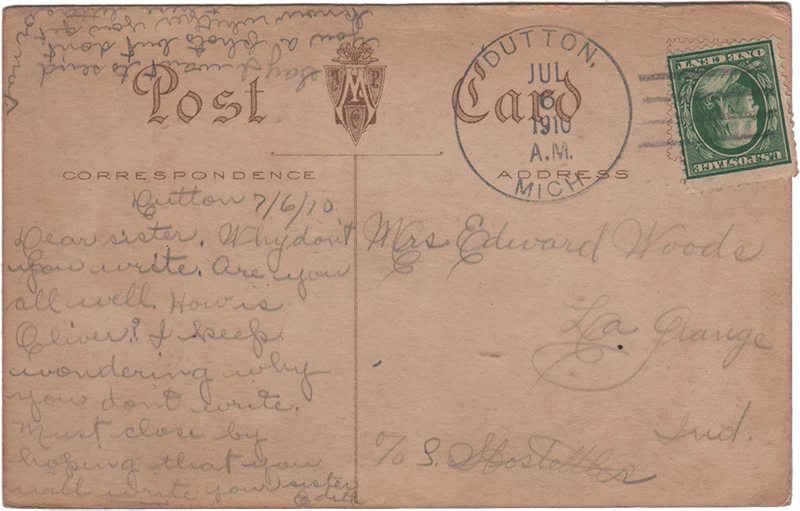 Post Card
AMPC
CORRESPONDENCE
ADDRESS
DUTTON,
JUL
6
1910
A.M.
MICH
ONE CENT
U.S. POSTAGE
Dutton 7/6/10
Dear sister. Why don't
you write. Are you
all well. How is
Oliver? I keep
wondering why
you don't write.
Must close by
hoping that you
will write your sister
Edith
Say I want to send
you a photo but don't
know whether you get
Mrs Edward Woods
La Grange
Ind.
c/o S. Hostettler